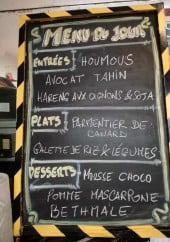 MENU DU JOUR
ENTRÉES HOUMOUS
AVOCAT TAHIN
HARENG AUX OIGNONS & SOJA
PLATS PARMENTIER DE
CANARD
GALETTE DE RIZ & LÉGUMES
DESSERTS MOUSSE CHOCO
POMME MASCARPONE
BETHMALE